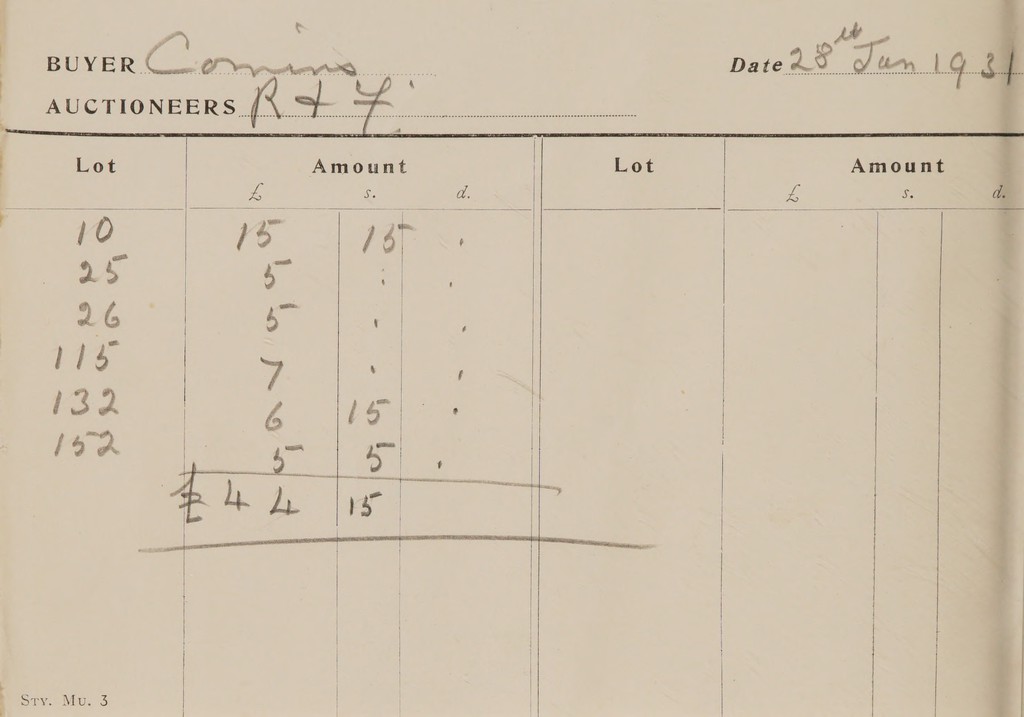 BUYER Comins Date 28th Jan 1931
AUCTIONEERS R & F
Lot Amount Lot Amount
£ s. d. £ s. d.
10 15 15 .
25 5 . .
26 5 . .
115 7 . .
132 6 15 .
152 5 5 .
£44 15
STY. MU. 3